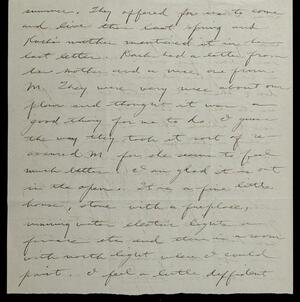 summer. They offered for us to come
and live there last spring and
Kach's mother mentioned it in her
last letter. Kach had a letter from
her mother and a nice one from
M. They were very nice about our
plan and thought it was a
good thing for us to do. I guess
the way they took it sort of re-
assured M for she seems to feel
much better. I am glad it is out
in the open. It is a fine little
house, stone with a fireplace,
running water electric lights a
furnace etc and there is a room
with north light where I could
paint. I feel a little diffident